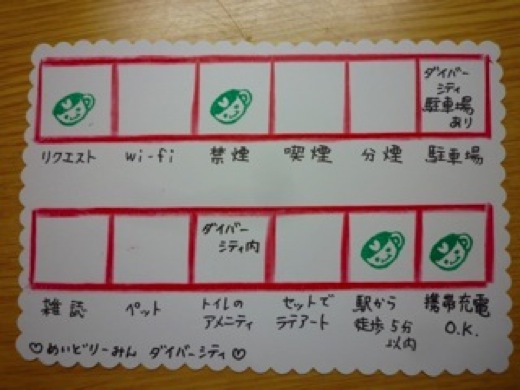 ダイバー
シティ
駐車場
あり
リクエスト wi-fi 禁煙 喫煙 分煙 駐車場
ダイバー
シティ内
雑読 ペット トイレの セットで 駅から 携帯充電
アメニティ ラテアート 徒歩5分 O.K.
以内
♡めいどりーみん ダイバーシティ♡